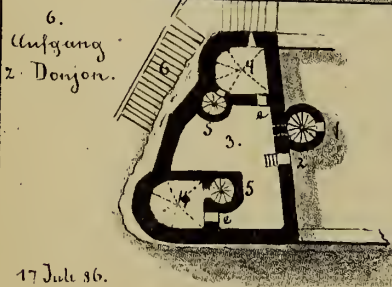 6.
Aufgang
z. Donjon.
6
4
5
e
3.
1
2
4
5
e
17 Juli 86.